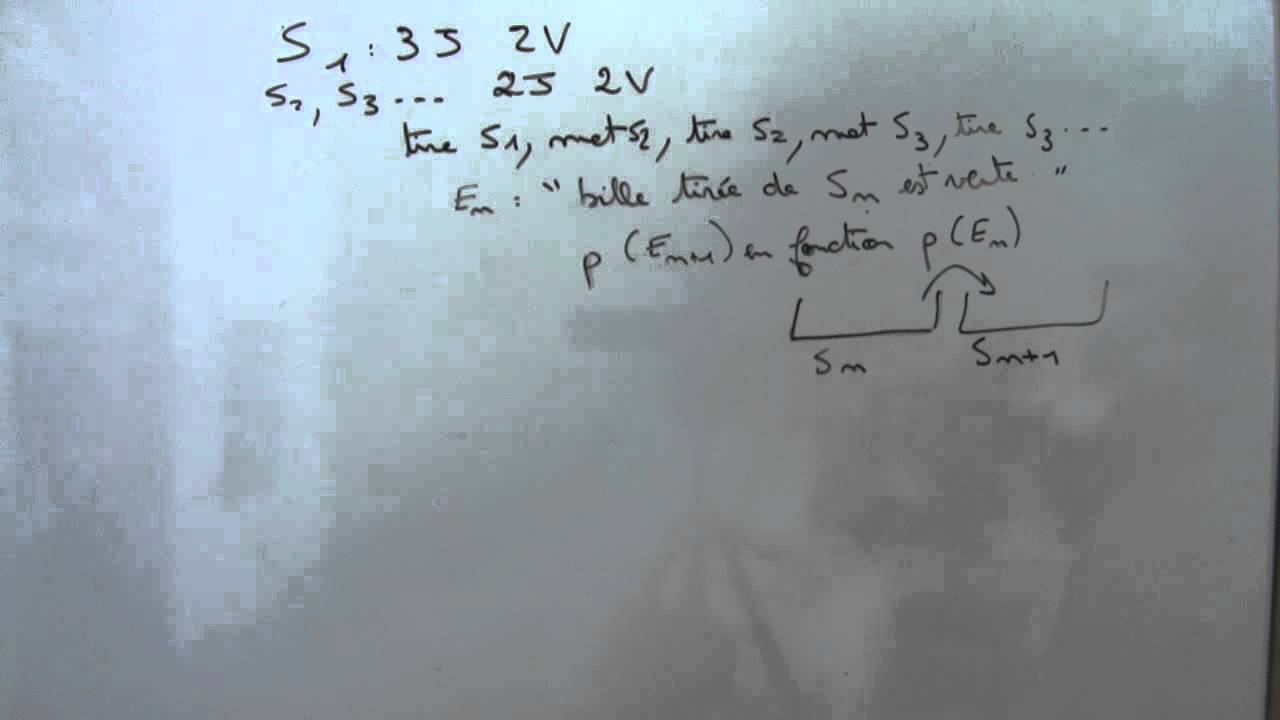 S1 : 3J 2V
S2, S3 ... 2J 2V
tire S1, met S2, tire S2, met S3, tire S3 ...
En : " bille tirée de Sn est verte "
p (En+1) en fonction p (En)
Sn Sn+1